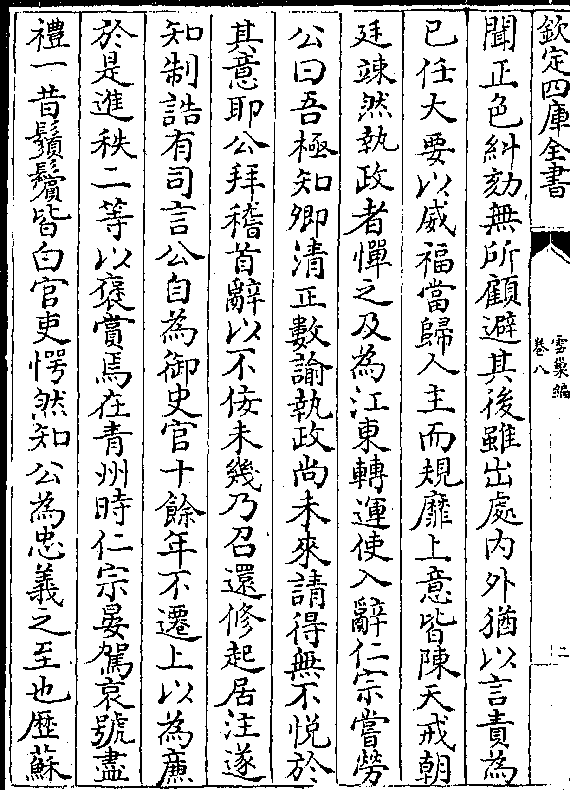 欽定四庫全書
雲巢編
卷八
二
聞正色糾劾無所顧避其後雖出處内外猶以言責為
已任大要以威福當歸人主而規靡上意皆陳天戒朝
廷竦然執政者憚之及為江東轉運使入辭仁宗嘗勞
公曰吾極知卿清正數諭執政尚未來請得無不悦於
其意耶公拜稽首辭以不佞未幾乃召還修起居注遂
知制誥有司言公自為御史官十餘年不遷上以為亷
於是進秩二等以褒賞焉在青州時仁宗晏駕哀號盡
禮一昔鬚鬢皆白官吏愕然知公為忠義之至也歴蘇